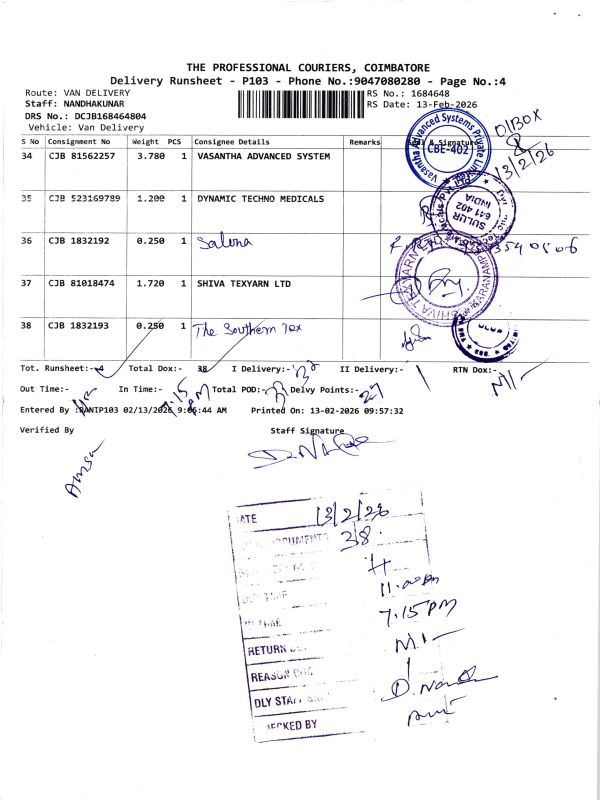 THE PROFESSIONAL COURIERS, COIMBATORE
Delivery Runsheet - P103 - Phone No.:9047080280 - Page No.:4
Route: VAN DELIVERY
RS No.: 1684648
Staff: NANDHAKUNAR
RS Date: 13-Feb-2026
DRS No.: DCJB168464804
Vehicle: Van Delivery
S No Consignment No Weight PCS Consignee Details Remarks Seal & Signature
34 CJB 81562257 3.780 1 VASANTHA ADVANCED SYSTEM
Vasantha Advanced Systems Private
CBE-402
01BOX
13/2/26
35 CJB 523169789 1.200 1 DYNAMIC TECHNO MEDICALS
SULUR
641 402
INDIA
36 CJB 1832192 0.250 1
37 CJB 81018474 1.720 1 SHIVA TEXYARN LTD
SHIVA TEXYARN
38 CJB 1832193 0.250 1 The Southern Tex
Tot. Runsheet:- 4 Total Dox:- 38 I Delivery:- II Delivery:- RTN Dox:- Nil
Out Time:- In Time:- 7.15 PM Total POD:- Delvy Points:- 27
Entered By :RANIP103 02/13/2026 9:06:44 AM Printed On: 13-02-2026 09:57:32
Verified By
Staff Signature
DATE 13/2/26
DOCUMENTS 38.
11.00am
7.15PM
RETURN Nil
REASON
DLY STAFF D. Nandh
CHECKED BY